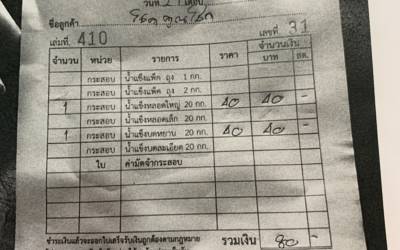 วันที่ 21 เดือน
ชื่อลูกค้า
เล่มที่ 410 เลขที่ 31
จำนวน หน่วย รายการ ราคา จำนวนเงิน
บาท สต.
กระสอบ น้ำแข็งแพ็ค ถุง 1 กก.
กระสอบ น้ำแข็งแพ็ค ถุง 2 กก.
1 กระสอบ น้ำแข็งหลอดใหญ่ 20 กก. 40 40 -
กระสอบ น้ำแข็งหลอดเล็ก 20 กก.
1 กระสอบ น้ำแข็งบดหยาบ 20 กก. 40 40 -
กระสอบ น้ำแข็งบดละเอียด 20 กก.
ใบ ค่ามัดจำกระสอบ
ชำระเงินแล้วจะออกใบเสร็จรับเงินถูกต้องตามกฎหมาย รวมเงิน 80 -